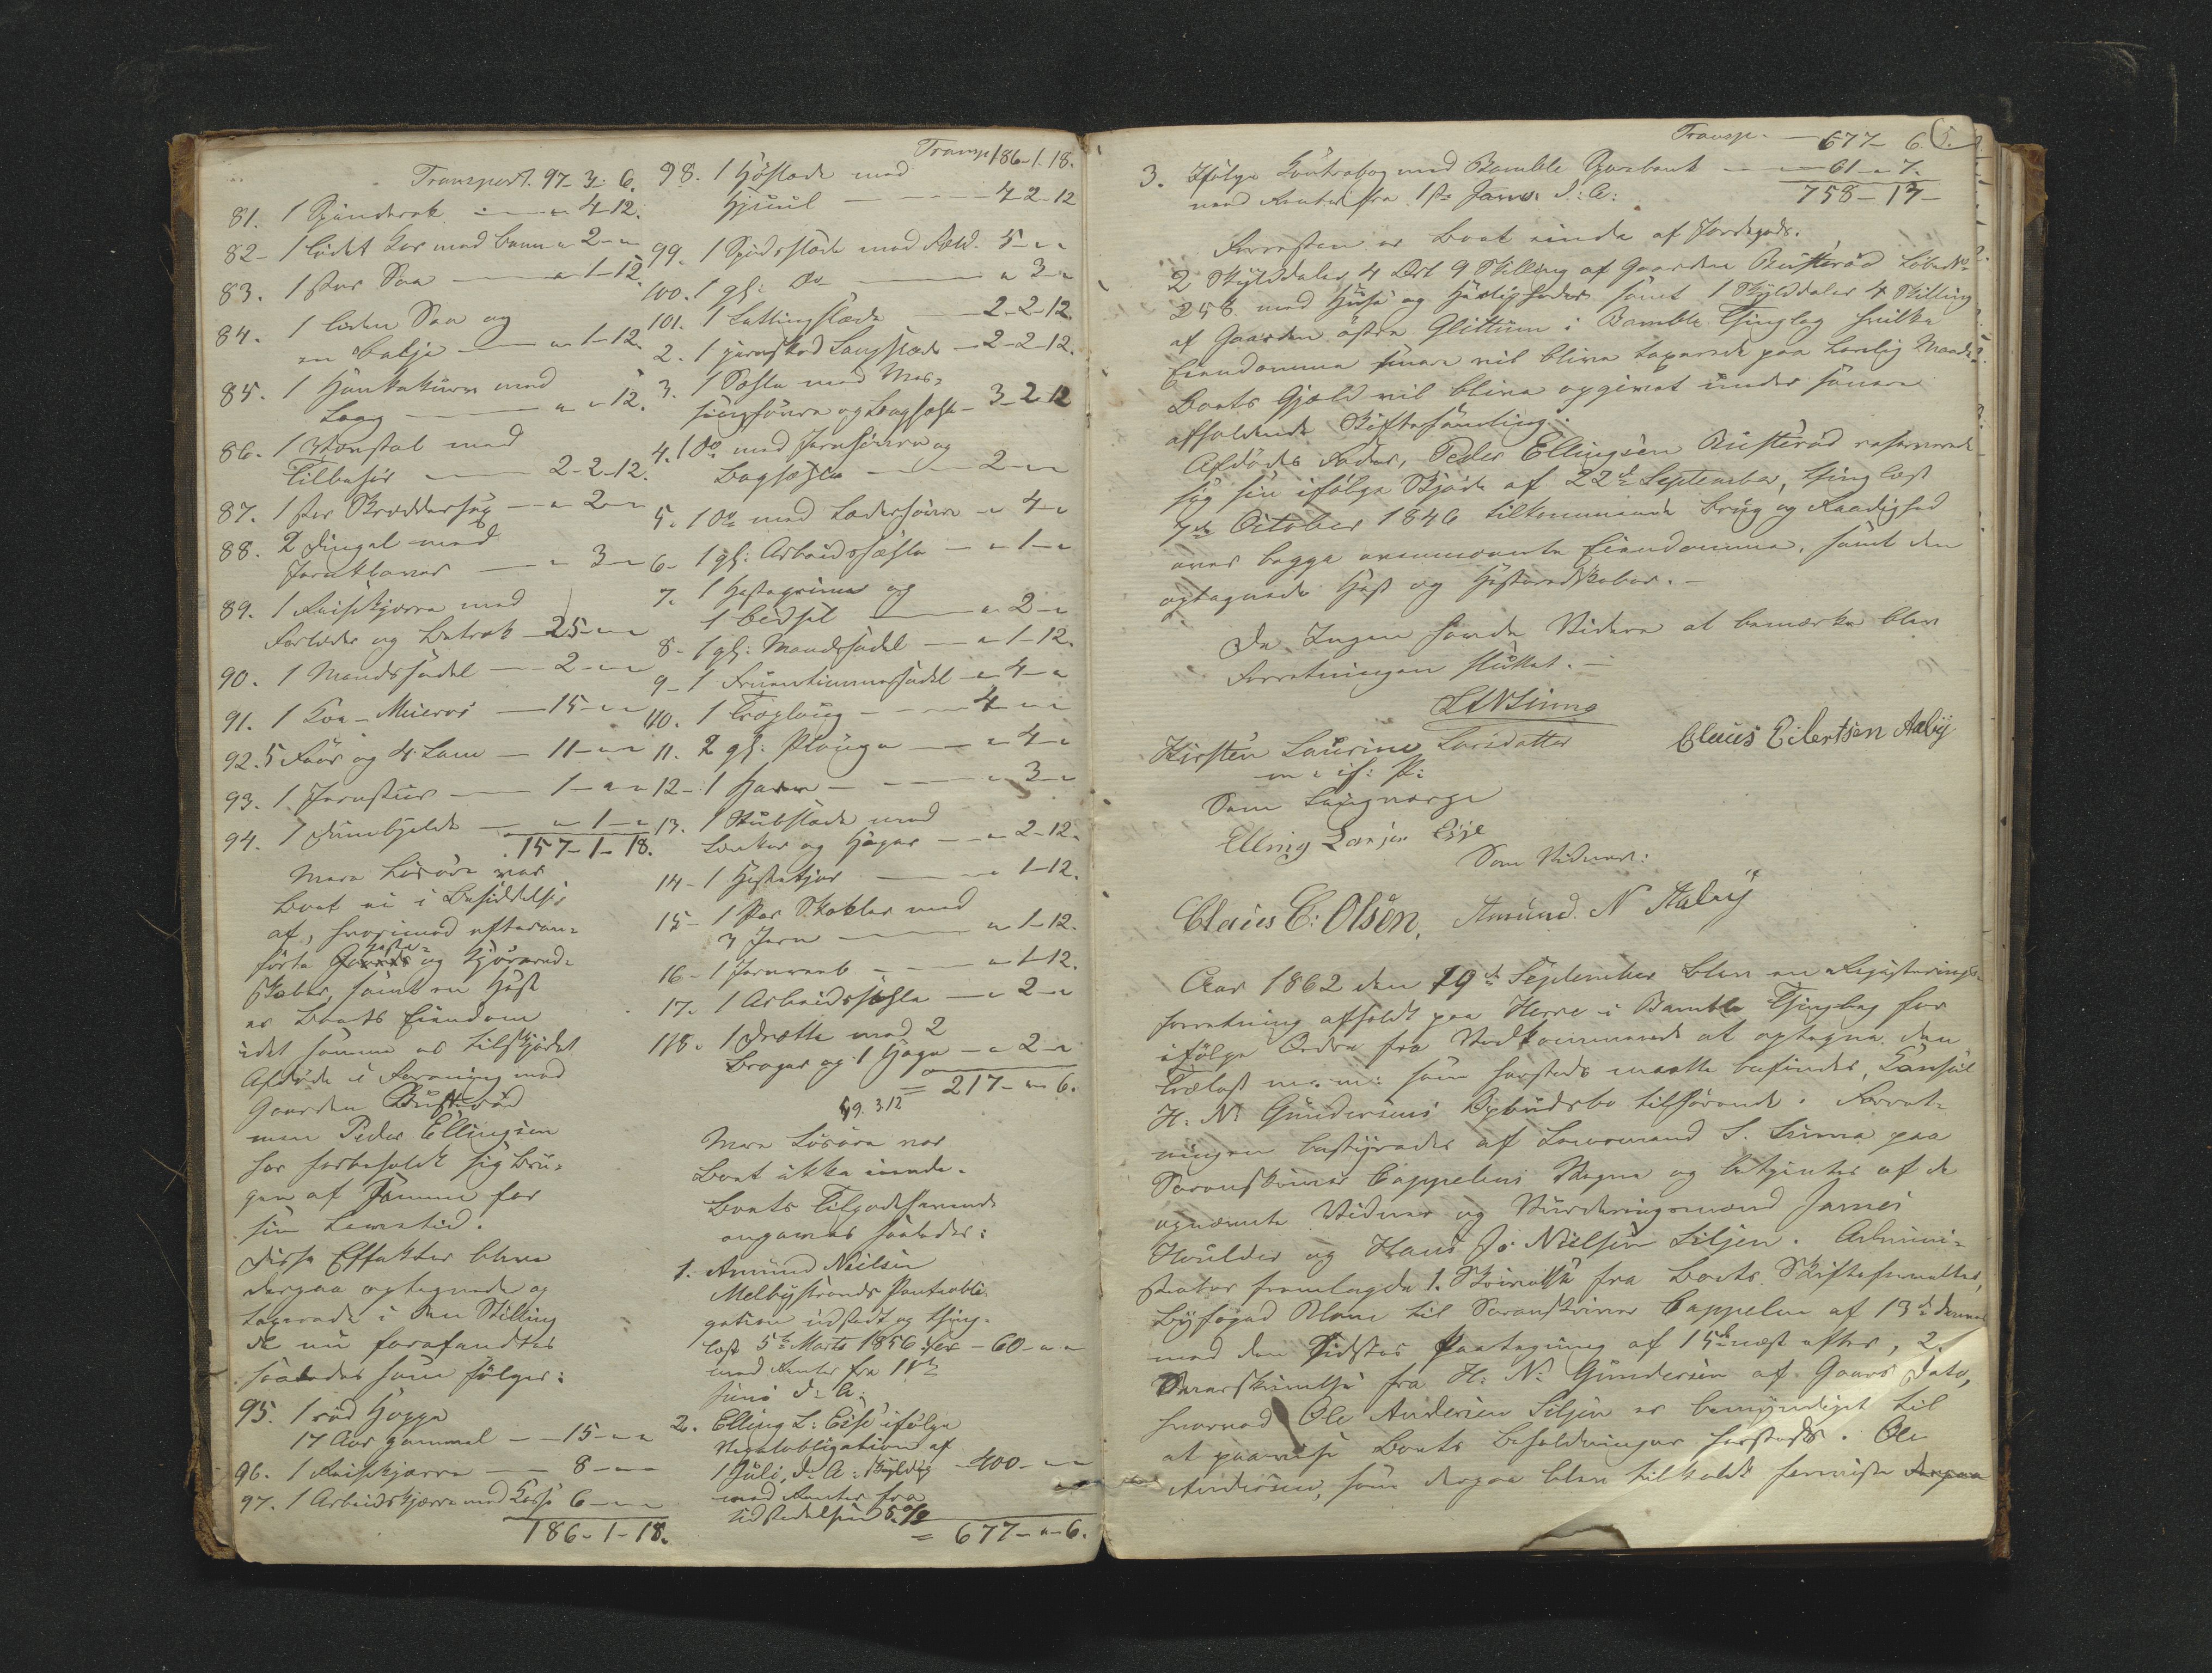 Transport. 97- 3- 6.
81. 1 Spinderok — " 4-12.
82- 1 lidet Kar med " 2- "
83. 1 stor Saa — " 1-12
84. 1 liden Saa og
en balje — " 1-12.
85. 1 med
Laag — " " 12.
86. 1 med
Tilbehør — 2-2-12.
87. 1 stor — " 2- "
88. 2 med
— " 3- "
89. 1 Reisekjærre med
Forlæder og — 25- " "
90. 1 Mandssadel — 2- " "
91. 1 Koe — 15- " "
92. 5 Faar og 4 Lam — 11- " "
93. 1 Jernstør — 1- " "
94. 1 — " 1- "
157- 1- 18.
Mere Løsøre var
Boet ei i Besiddelse
af, hvorimod efteran=
førte Gaards heste= og Kjørered=
skaber, samt en Hest
er Boets Eiendom
idet samme er tilskjødet
Afdøde i Forening med
Gaarden Bustrød
men Peder Ellingsen
har forbeholdt sig Bru=
gen af Samme for
sin Levetid.
Disse Effekter bleve
derpaa optegnede og
taxerede i den Stilling
de nu forefandtes
saaledes som følger:
95. 1 rød Hoppe
17 Aar gammel — 15- " "
96. 1 Reisekjærre — 8- " "
97. 1 Arbeidskjærre med Kasse 6- " "
186- 1- 18.
Transp 186- 1. 18.
98. 1 Høslæde med
Hjuul — 4-2-12
99. 1 Spidsslæde med Feld. 5- " "
100. 1 gl: Do — " 3- "
101. 1 — 2-2-12.
2. 1 jernskod Langslæde — 2-2-12.
3. 1 Sæhle med Mes=
singhøvre og Bagsæhle — 3-2-12
4. 1 Do med Jernhøvre og
Bagsæhle — 2- " "
5. 1 Do med Læderhøvre " 4- "
6- 1 gl: Arbeidssæhle — " 1- "
7. 1 Hestegrime og
1 bidsel — " 2- "
8- 1 gl: Mandssadel — " 1-12.
9- 1 Fruentimmersadel — " 4- "
110. 1 Træploug — " 4- "
11. 2 gl: Plouge — " 4- "
12- 1 Harve — " 3- "
13. 1 Stubslæde med
Lænker og Hager — " 2-12.
14- 1 — " 1-12.
15- 1 Par Skokler med
3 Jern — " 1-12.
16- 1 — " 1-12.
17. 1 Arbeidssæhle — " 2- "
118. 1 Drætte med 2
Drager og 1 Hage — " 2- "
= 217- " 6.
59. 3. 12
Mere Løsøre var
Boet ikke eiende.
Boets Tilgodehavende
angaves saaledes:
1. Amund Nielsen
Melbystrands Panteobli
gation udstedt og thing=
læst 5te Marts 1856 — 60- " "
med Renter fra 11te
Juni d: A:
2. Elling L: Eise ifølge
obligation af
1 Juli d: A: skyldig 400- " "
med Renter fra
Udstedelsen 5 %
= 677- " - 6.
Transp. — 677- 6.
5.
3. Ifølge Contrabog med Bamble Sparebank — 61 " 7.
med Renter fra 1ste Januar d: A:
758- 13-
Forresten er Boet eiende af Jordegods.
2 Skylddaler 4 Ort 9 Skilling af Gaarden Bustrød Løbe No
258 med Huse og Herligheder samt 1 Skylddaler 4 Skilling
af Gaarden østre Glittum i Bamble Thinglag hvilke
Eiendomme senere vil blive taxerede paa lovlig Maade.
Boets Gjæld vil blive opgivet under senere
afholdende Skiftesamling.
Afdødes Fader, Peder Ellingsen Bustrød reserverede
sig sin ifølge Skjøde af 22de September, thinglæst
7de October 1846 tilkommende Brug og Raadighed
over begge ovennævnte Eiendomme, samt den
optegnede Hest og Hesteredskaber. —
Da Ingen havde Videre at bemærke blev
Forretningen sluttet. —
Kirsten Laurine Larsdatter
m: if: P:
Claus Eilertsen Aaby
Som Laugværge
Elling Larsen Eise
Som Vidner:
Claus C: Olsen, Amund. N Aaby
Aar 1862 den 19de September blev en Registrerings=
forretning afholdt paa Herre i Bamble Thinglag for
ifølge Ordre fra Vedkommende at optegne den
Trælast m. m: som hersteds maatte befindes, Consul
H. N. Gundersens Opbudsbo tilhørende. Forret=
ningen bestyredes af Lensmand S. Sinna paa
Sorenskriver Cappelens Vegne og betjentes af de
opnævnte Vidner og Vurderingsmænd James
Houlder og Hans Jo Nielsen Siljen. Admini=
strator fremlagde 1. Skrivelse fra Boets Skifteforvalter,
Byfoged Blom til Sorenskriver Cappelen af 13de dennes
med den Sidstes Paategning af 15de næst efter, 2.
Skrivelse fra H: N: Gundersen af Gaars Dato,
hvorved Ole Andersen Siljen er bemyndiget til
at paavise Boets Beholdninger hersteds. Ole
Andersen, som derpaa blev tilkaldt henviste derpaa